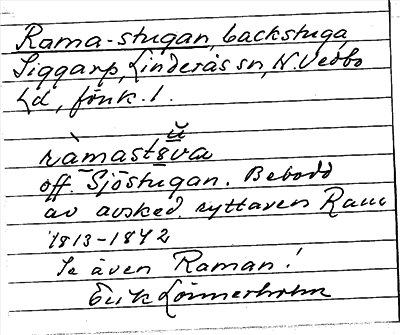 Rama-stugan, backstuga,
Siggarp, Linderås sn, N. Vedbo
hd, Jönk. l.
ràmastŭva
off. Sjöstugan. Bebodd
av avsked. ryttaren Ram
1813-1842
Se även Raman!
Erik Lönnerholm